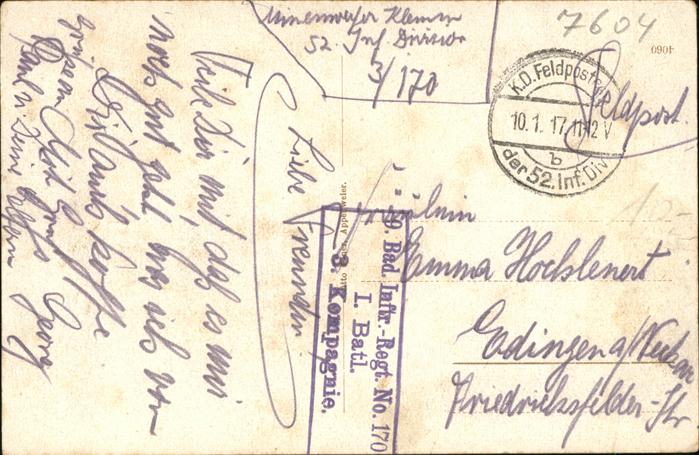 Minenwerfer Klemm
52. Inf. Division
3/170
7604
0901
Feldpost.
K.D. Feldpost
10.1.17. 11-12 V
b
der 52. Inf. Div.
Fräulein
Emma Hochlenert
Edingen a/Neckar
Friedrichsfelder-Str
9. Bad. Inftr.-Regt. No. 170
I. Batl.
3. Kompagnie.
Appenweier.
Liebe Freundin
Teile Dir mit daß es mir
noch gut geht was ich von
Dir auch hoffe
Mit Gruß
Georg